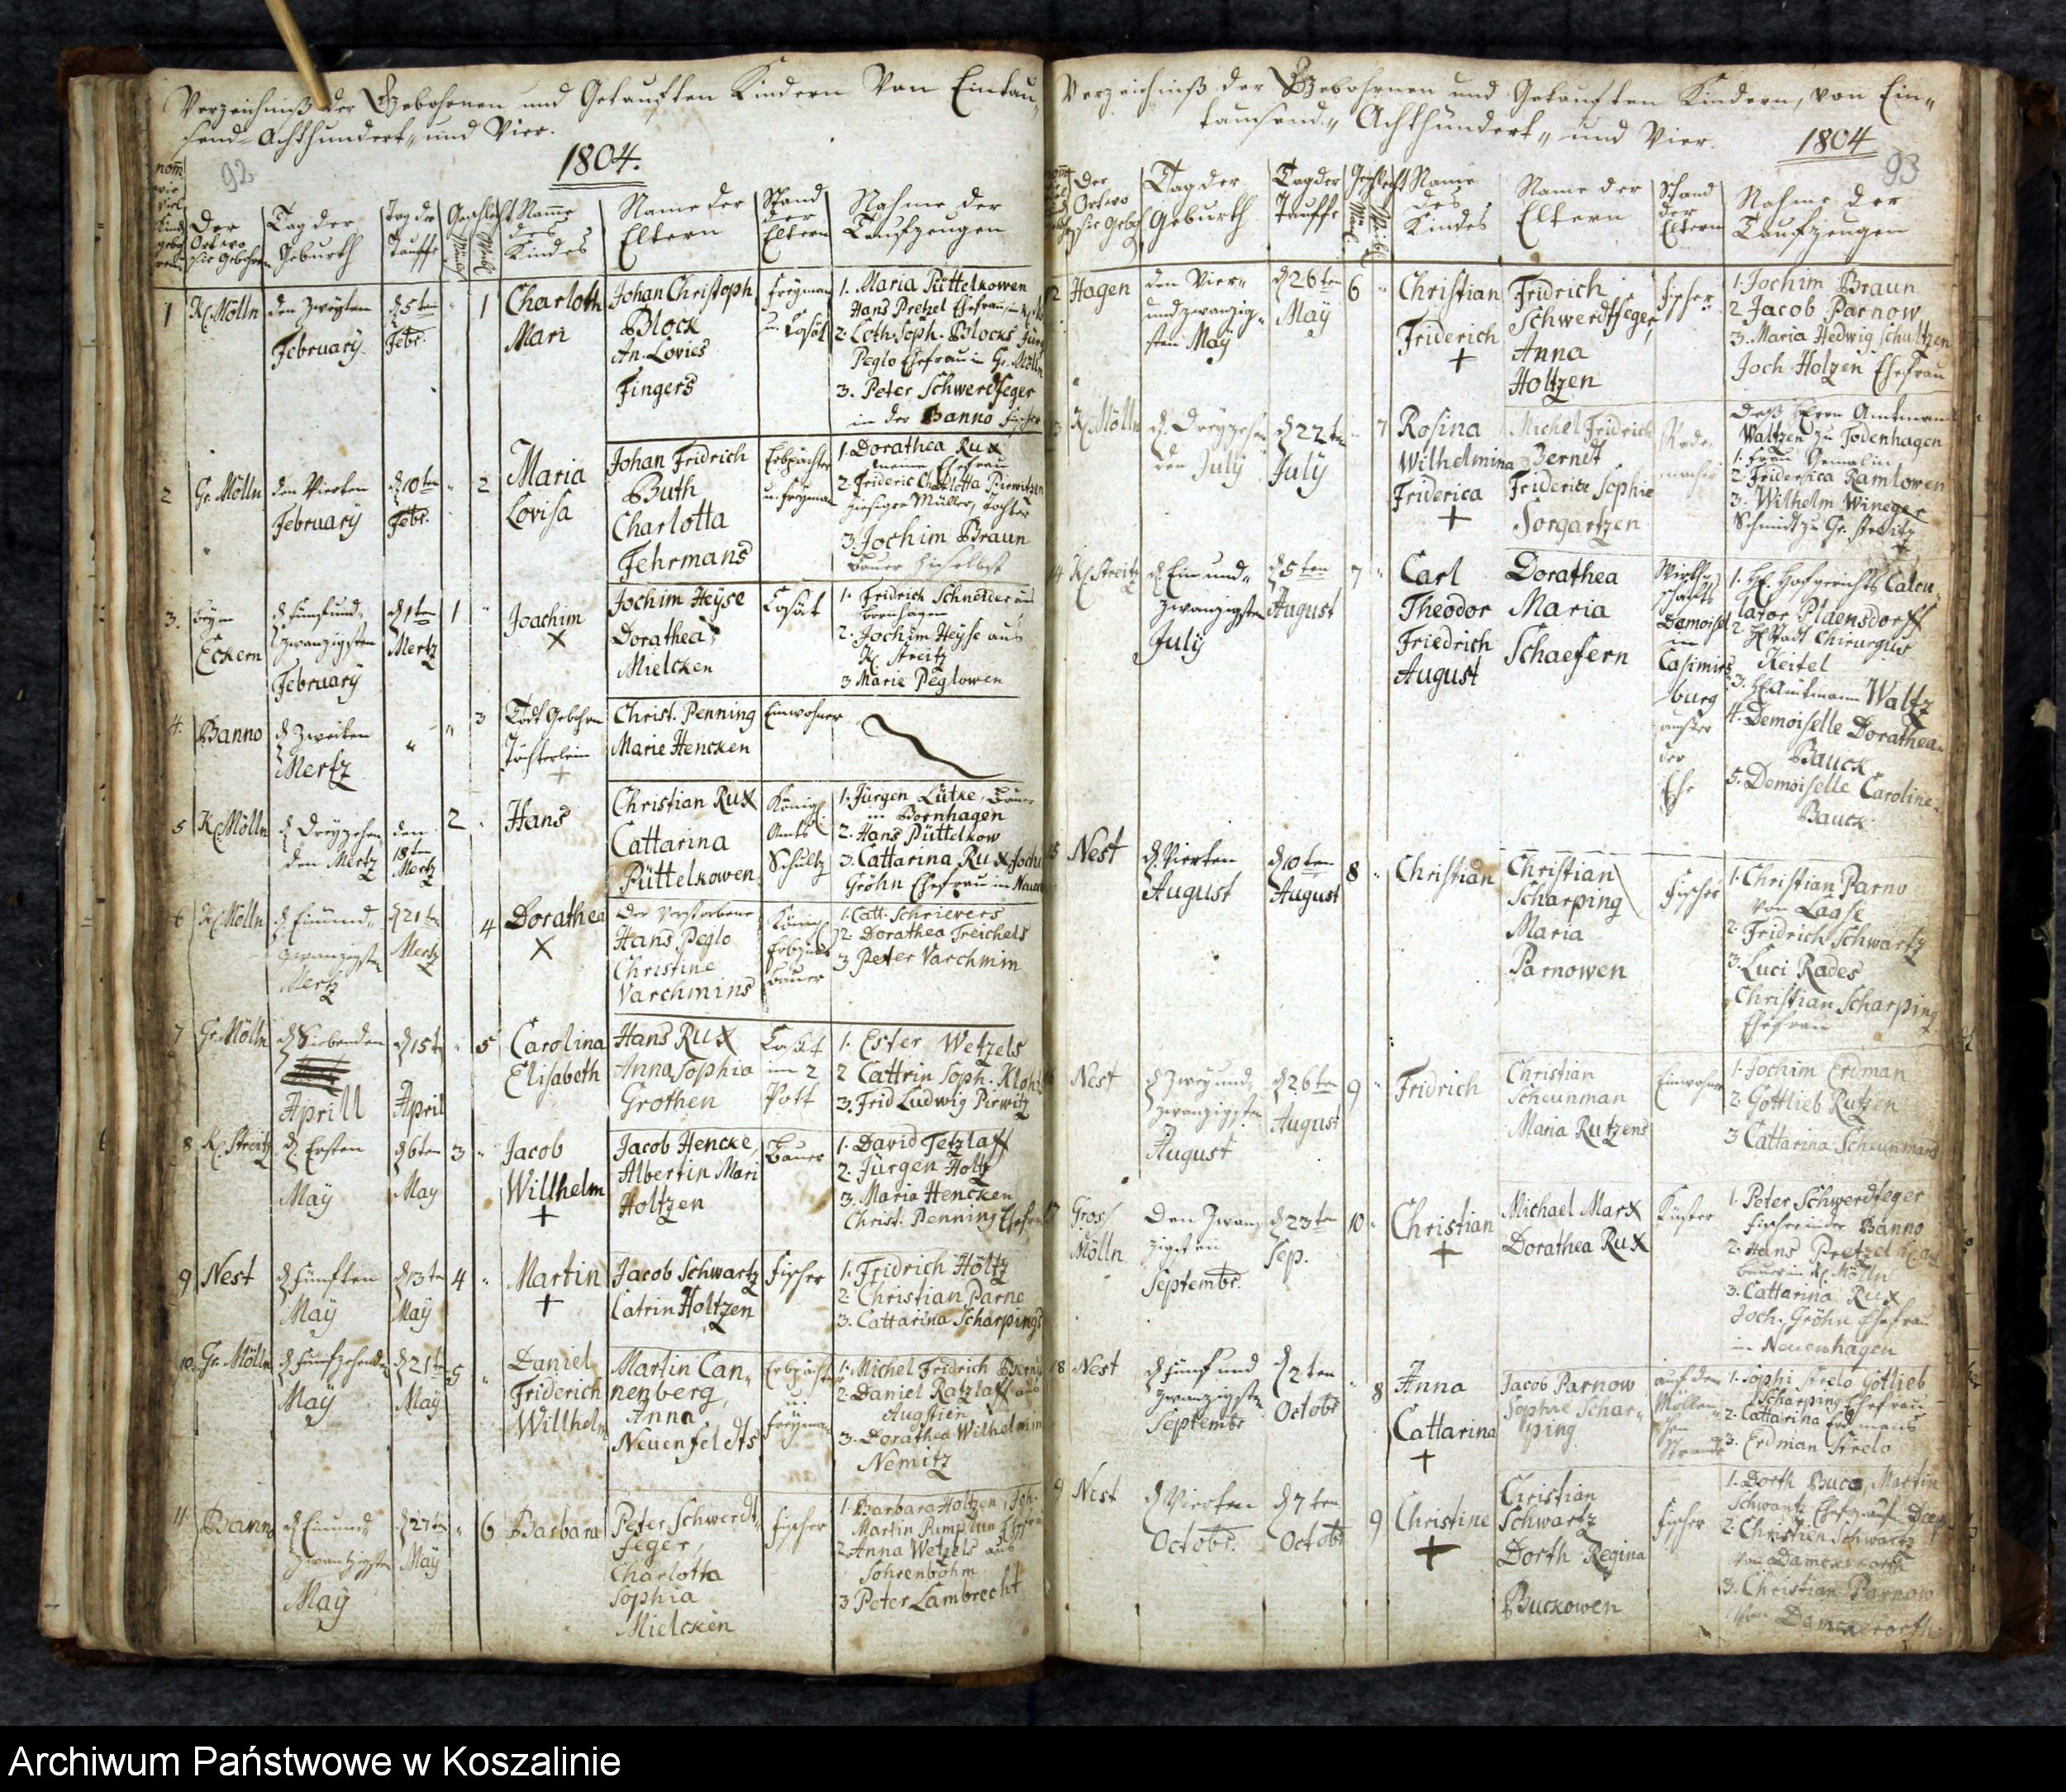 Verzeichniß der Gebohrnen und Getauften Kindern Von Eintau„
send-Achthundert„ und Vier.
1804.
92
Der Ort wo sie Gebohren
Tag der Geburth
Tag der Tauffe
Geschlecht
Name des Kindes
Name der Eltern
Stand der Eltern
Nahme der Taufzeugen
1 Kl. Mölln den Zweyten February d 5ten Febr. " 1 Charloth Mari
Johan Christoph Block
An. Lovies Fingers
Freyman u. Cossät
1. Maria Püttelkowen
Hans Pretzel Ehefrau in
2. Loth. Soph. Blocks
Peglo Ehefrau in Gr. Mölln
3. Peter Schwerdfeger
in der Banno Fischer
2 Gr. Mölln den Vierten February d 10ten Febr. " 2 Maria Lovisa
Johan Fridrich Buth
Charlotta Fehrmans
Erbpächter u. Freyman
1. Dorathea Rux
meine Ehefrau
2. Frideric Charlotta Pirwitzen
hiesigen Müller, Tochter
3. Jochim Braun
Bauer hieselbst
3. beym Eckern d fünfund„ zwanzigsten February d 1ten Mertz 1 " Joachim X
Jochim Heÿse
Dorathea Mielcken
Cosät
1. Fridrich Schneider aus
Bornhagen
2. Jochim Heÿse aus
Kl. Streitz
3 Marie Peglowen
4. Banno d Zweiten Mertz " " 3 Todt Gebohrn Töchterlein +
Christ. Penning
Marie Hencken
Einwohner
5 Kl. Mölln d Dreyzehn„ den Mertz den 18ten Mertz 2 " Hans
Christian Rux
Cattarina Püttelkowen
Königl. Amts Schultz
1. Jürgen Lütke, Bauer
in Bornhagen
2. Hans Püttelkow
3. Cattarina Rux, Joch
Gröhn Ehefrau in
6 Kl. Mölln d Einund„ zwanzigsten Mertz d 21ten Mertz 4 Dorathea X
Der Verstorbene
Hans Peglo
Christine Varchmins
Königl. Bauer
1. Catt. Schrievers
2. Dorathea Treichels
3. Peter Varchmin
7 Gr. Mölln d Siebenden Aprill d 15t April " 5 Carolina Elisabeth
Hans Rux
Anna Sophia Grothen
1. Ester Wetzels
2 Cattrin Soph. Kloht
3. Frid Ludwig Pirwitz
8 Kl. Streitz d. Ersten Maÿ d 6ten May 3 " Jacob Willhelm +
Jacob Hencke,
Albertin Mari Holtzen
Bauer
1. David Tetzlaff
2. Jürgen Holtz
3. Maria Hencken
Christ. Penning Ehefrau
9 Nest d fünften Maÿ d 13ten Maÿ 4 " Martin +
Jacob Schwartz
Catrin Holtzen
Fischer
1. Fridrich Höltz
2. Christian Parno
3. Cattarina Scharpings
10. Gr. Mölln d fünfzehende Maÿ d 21ten Maÿ 5 " Daniel Friderich Willhelm
Martin Can„
nenberg,
Anna Neuenfeldts
Erbpächter u. Freyman
1. Michel Fridrich
2. Daniel Ratzlaff aus
Augstien
3. Dorathea Wilhelmin
Nemitz
11 Banno d Einund„ zwantzigsten Maÿ d 27ten Maÿ " 6 Barbara
Peter Schwerdt„
feger,
Charlotta Sophia Mielcken
Fischer
1. Barbara Holtzen, Joh.
Martin Pumplun Ehefrau
2. Anna Wetzels aus
Sohrenbohm
3 Peter Lambrecht
Verzeichniß der Gebohrnen und Getauften Kindern, von Ein„
tausend„ Achthundert„ und Vier.
1804
93
Der Ort wo sie Geboh
Tag der Geburth
Tag der Tauffe
Geschlecht
Name des Kindes
Name der Eltern
Stand der Eltern
Nahme der Taufzeugen
2 Hagen den Vier„ und zwanzig„ sten Maÿ d 26ten Maÿ 6 " Christian Friderich +
Fridrich Schwerdtfeger,
Anna Holtzen
Fischer
1. Jochim Braun
2 Jacob Parnow
3. Maria Hedwig Schultzen
Joch Holzen Ehefrau
3 Kl. Mölln d. Dreyzehn den Julÿ d 22ten Julÿ " 7 Rosina Wilhelmina Friderica +
Michel Fridrich Berndt
Friderice Sophie Sorgartzen
Rade„ macher
Deß Herrn Amtmann
Waltzen zu Todenhagen
1. Frau Gemalin
2. Fridersica Ramlowen
3. Wilhelm Wineger
Schmidt zu Gr. Streitz
14 Kl. Streitz d. Ein und„ zwanzigsten Julÿ d 5ten August 7 " Carl Theodor Friedrich August
Dorathea Maria Schaefern
Wirthschafts Demoisel in Casimirs„ burg ausser der Ehe
1. H. Hofgerichts Calcu„
lator Plaensdorff
2. H. Stadt Chirurgus
Keitel
3. H. Amtmann Waltz
4. Demoiselle Dorathea
Bauck
5. Demoiselle Caroline
Bauck
5 Nest d. Vierten August d 10ten August 8 " Christian
Christian Scharping
Maria Parnowen
Fischer
1. Christian Parno
von Laase
2. Fridrich Schwartz
3. Luci Rades
Christian Scharping
Ehefrau
6 Nest d Zweÿ und„ zwanzigsten August d 26ten August 9 " Fridrich
Christian Scheunman
Maria Rutzens
Einwohner
1. Jochim Erdman
2. Gottlieb Rutzen
3 Cattarina Scheunmans
7 Gross Mölln Den Zwan„ zigsten Septembr. d 23ten Sep. 10 " Christian +
Michael Marx
Dorathea Rux
Küster
1. Peter Schwerdfeger
Fischer in der Banno
2. Hans Pretzel
Bauer in Kl. Mölln
3. Cattarina Rux
Joch. Gröhn Ehefrau
in Neuenhagen
18 Nest d fünf und zwanzigsten Septembr d 2ten Octobr " 8 Anna Cattarina +
Jacob Parnow
Sophie Schar„
ping
auf dem Möllen„ schen Strande
1. Sophi Strelo Gotlieb
Scharping Ehefrau
2. Cattarina Erdmans
3. Erdman Strelo
9 Nest d Vierten Octobr. d 7ten Octobr 9 Christine +
Christian Schwartz
Dorth Regina Buckowen
Fischer
1. Dorth Buco, Martin
Schwantz Ehefrau
2. Christien Schwartz
von Damckerorth
3. Christian Parnow
von Damckerorth
Archiwum Państwowe w Koszalinie